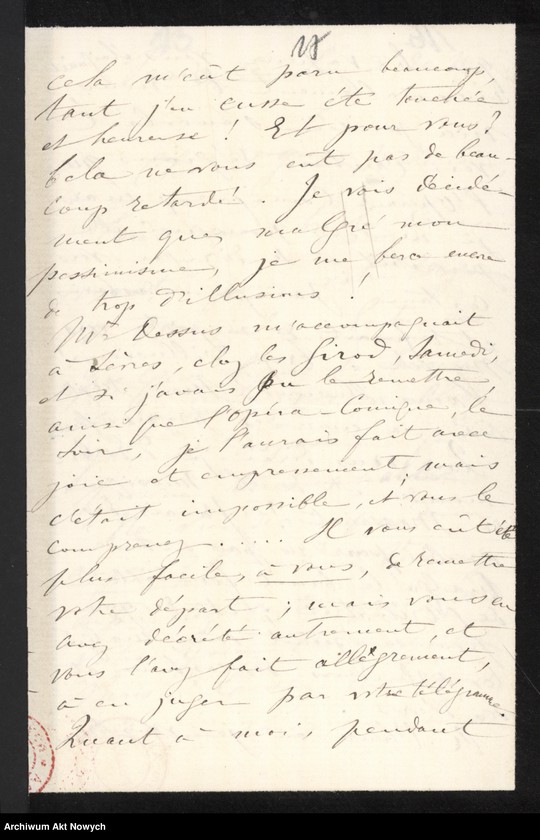 28
cela m'eût paru beaucoup,
tant j'en eusse été touchée
et heureuse ! Et pour vous?
Cela ne vous eut pas de beau-
coup retardé. Je vois décidé-
ment que, malgré mon
pessimisme, je me fera encore
de trop d'illusions !
Mr Dessus m'accompagnait
à Sèvres, chez les Girod, Samedi,
et si j'avais pu le remettre,
ainsi que l'opéra-Comique, le
soir, je l'aurais fait avec
joie et empressement, mais
c'était impossible, et vous le
comprenez ..... Il vous eût été
plus facile, à vous, de remettre
votre départ ; mais vous en
avez décrété autrement, et
vous l'avez fait allégrement,
à en juger par votre télégramme.
Quant à moi, pendant
Archiwum Akt Nowych